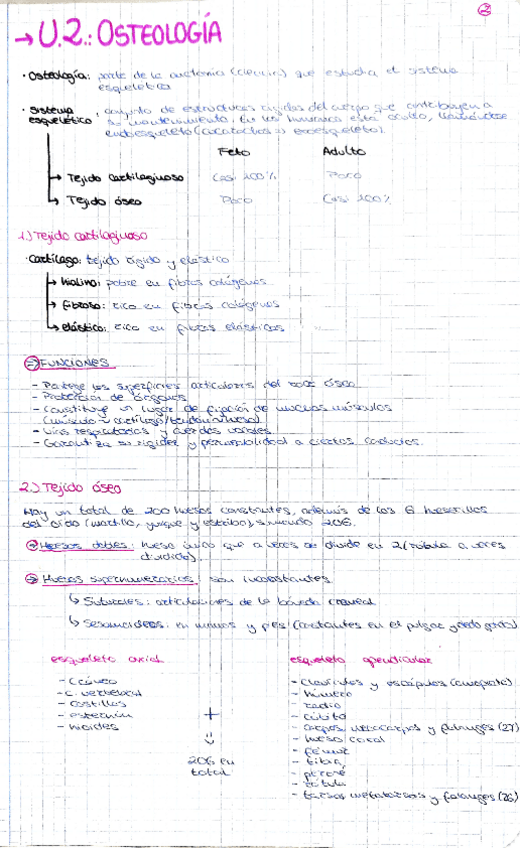 2
→ U.2.: OSTEOLOGÍA
· Osteología: parte de la anatomía (ciencia) que estudia el sistema
esquelético
· Sistema esquelético: conjunto de estructuras rígidas del cuerpo que contribuyen a
su mantenimiento. En los humanos está oculto, llamándose
endoesqueleto (cucarachas => exoesqueleto).
Feto Adulto
→ Tejido cartilaginoso Casi 100% Poco
→ Tejido óseo Poco Casi 100%
1.) Tejido cartilaginoso
· Cartílago: tejido rígido y elástico
→ hialino: pobre en fibras colágenas
→ fibroso: rico en fibras colágenas
→ elástico: rico en fibras elásticas
⇒ FUNCIONES
- Protege las superficies articulares del roce óseo
- Protección de órganos
- Constituye un lugar de fijación de muchos músculos
(músculo - cartílago/tendón/hueso)
- Vías respiratorias y cuerdas vocales
- Garantiza su rigidez y permeabilidad a ciertos conductos.
2.) Tejido óseo
Hay un total de 200 huesos constantes, además de los 6 huesecillos
del oído (martillo, yunque y estribo), sumando 206.
⇒ Huesos dobles: hueso único que a veces se divide en 2 (rótula a veces
dividida).
⇒ Huesos supernumerarios: son inconstantes
↳ Suturales: articulaciones de la bóveda craneal
↳ Sesamoideos: en manos y pies (constantes en el pulgar y dedo gordo)
esqueleto axial esqueleto apendicular
- Cráneo
- C. vertebral
- costillas
- esternón
- hioides
+
206 en
total
- Clavículas y escápulas (omóplato)
- húmero
- radio
- cúbito
- carpos, metacarpos y falanges (27)
- hueso coxal
- fémur
- tibia
- peroné
- rótula
- tarsos, metatarsos y falanges (26)